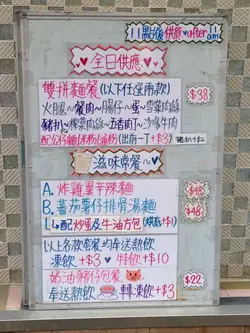 11點後供應 after
全日供應
雙拼麵餐(以下任選兩款)
火腿~餐肉~腸仔~蛋~雪菜肉絲
豬扒~榨菜肉絲~五香肉丁~沙嗲牛肉
配公仔麵(米粉/通粉)(出前一丁+$3)
$38
豬扒+$2
滋味常餐
A. 炸雞翼辛辣麵 $48
B. 蕃茄薯仔排骨湯麵 $48
配炒蛋及牛油方包(烘底+$1)
以上各款常餐均牟送熱飲
凍飲+$3 特飲+$10
奶油豬仔包餐 $22
牟送熱飲 轉凍飲+$3